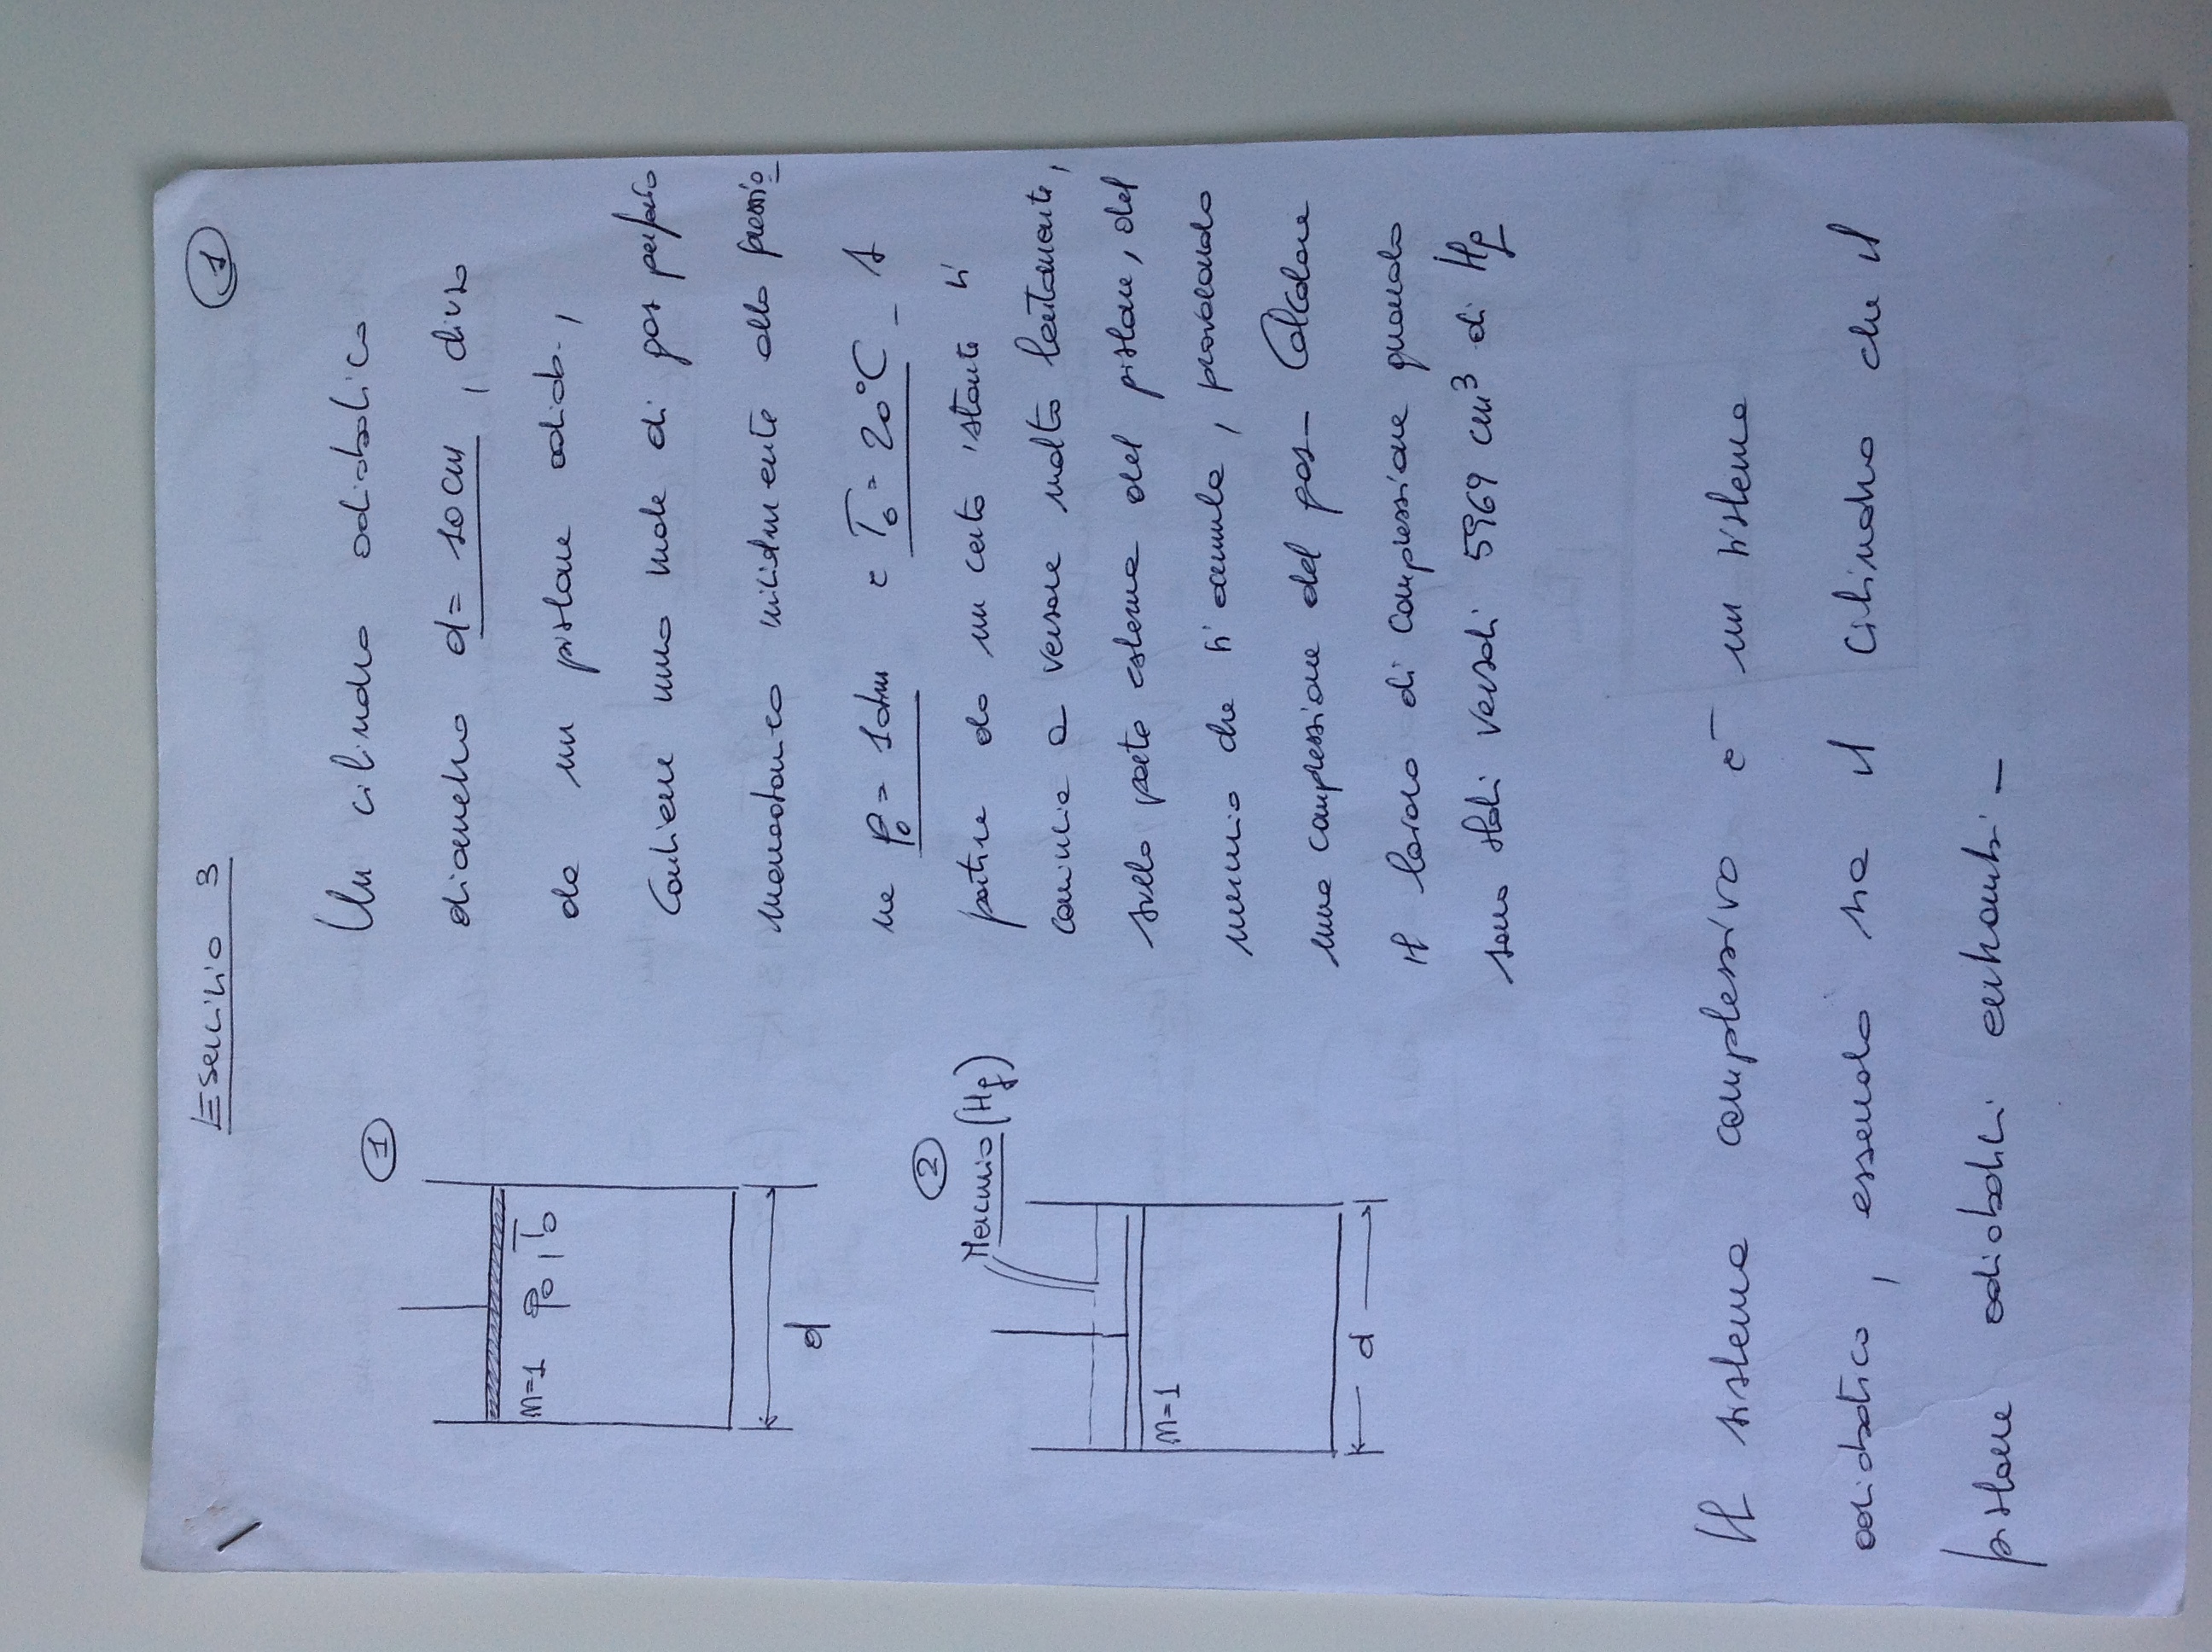 Esercizio 3
1
1
n=1 p₀, T₀
d
2
Mercurio (Hg)
n=1
d
Un cilindro adiabatico
diametro d= 10 cm, diviso
da un pistone adiab.,
Contiene una mole di gas perfetto
monoatomico inizialmente alla pressio-
ne p₀ = 1 atm e T₀ = 20°C - A
partire da un certo istante si
comincia a versare molto lentamente,
sulla parte esterna del pistone, del
mercurio che si accumula, provocando
una compressione del gas - Calcolare
il lavoro di compressione quando
sono stati versati 5969 cm³ di Hg
Il sistema complessivo è un sistema
adiabatico, essendo sia il cilindro che il
pistone adiabatici entrambi -